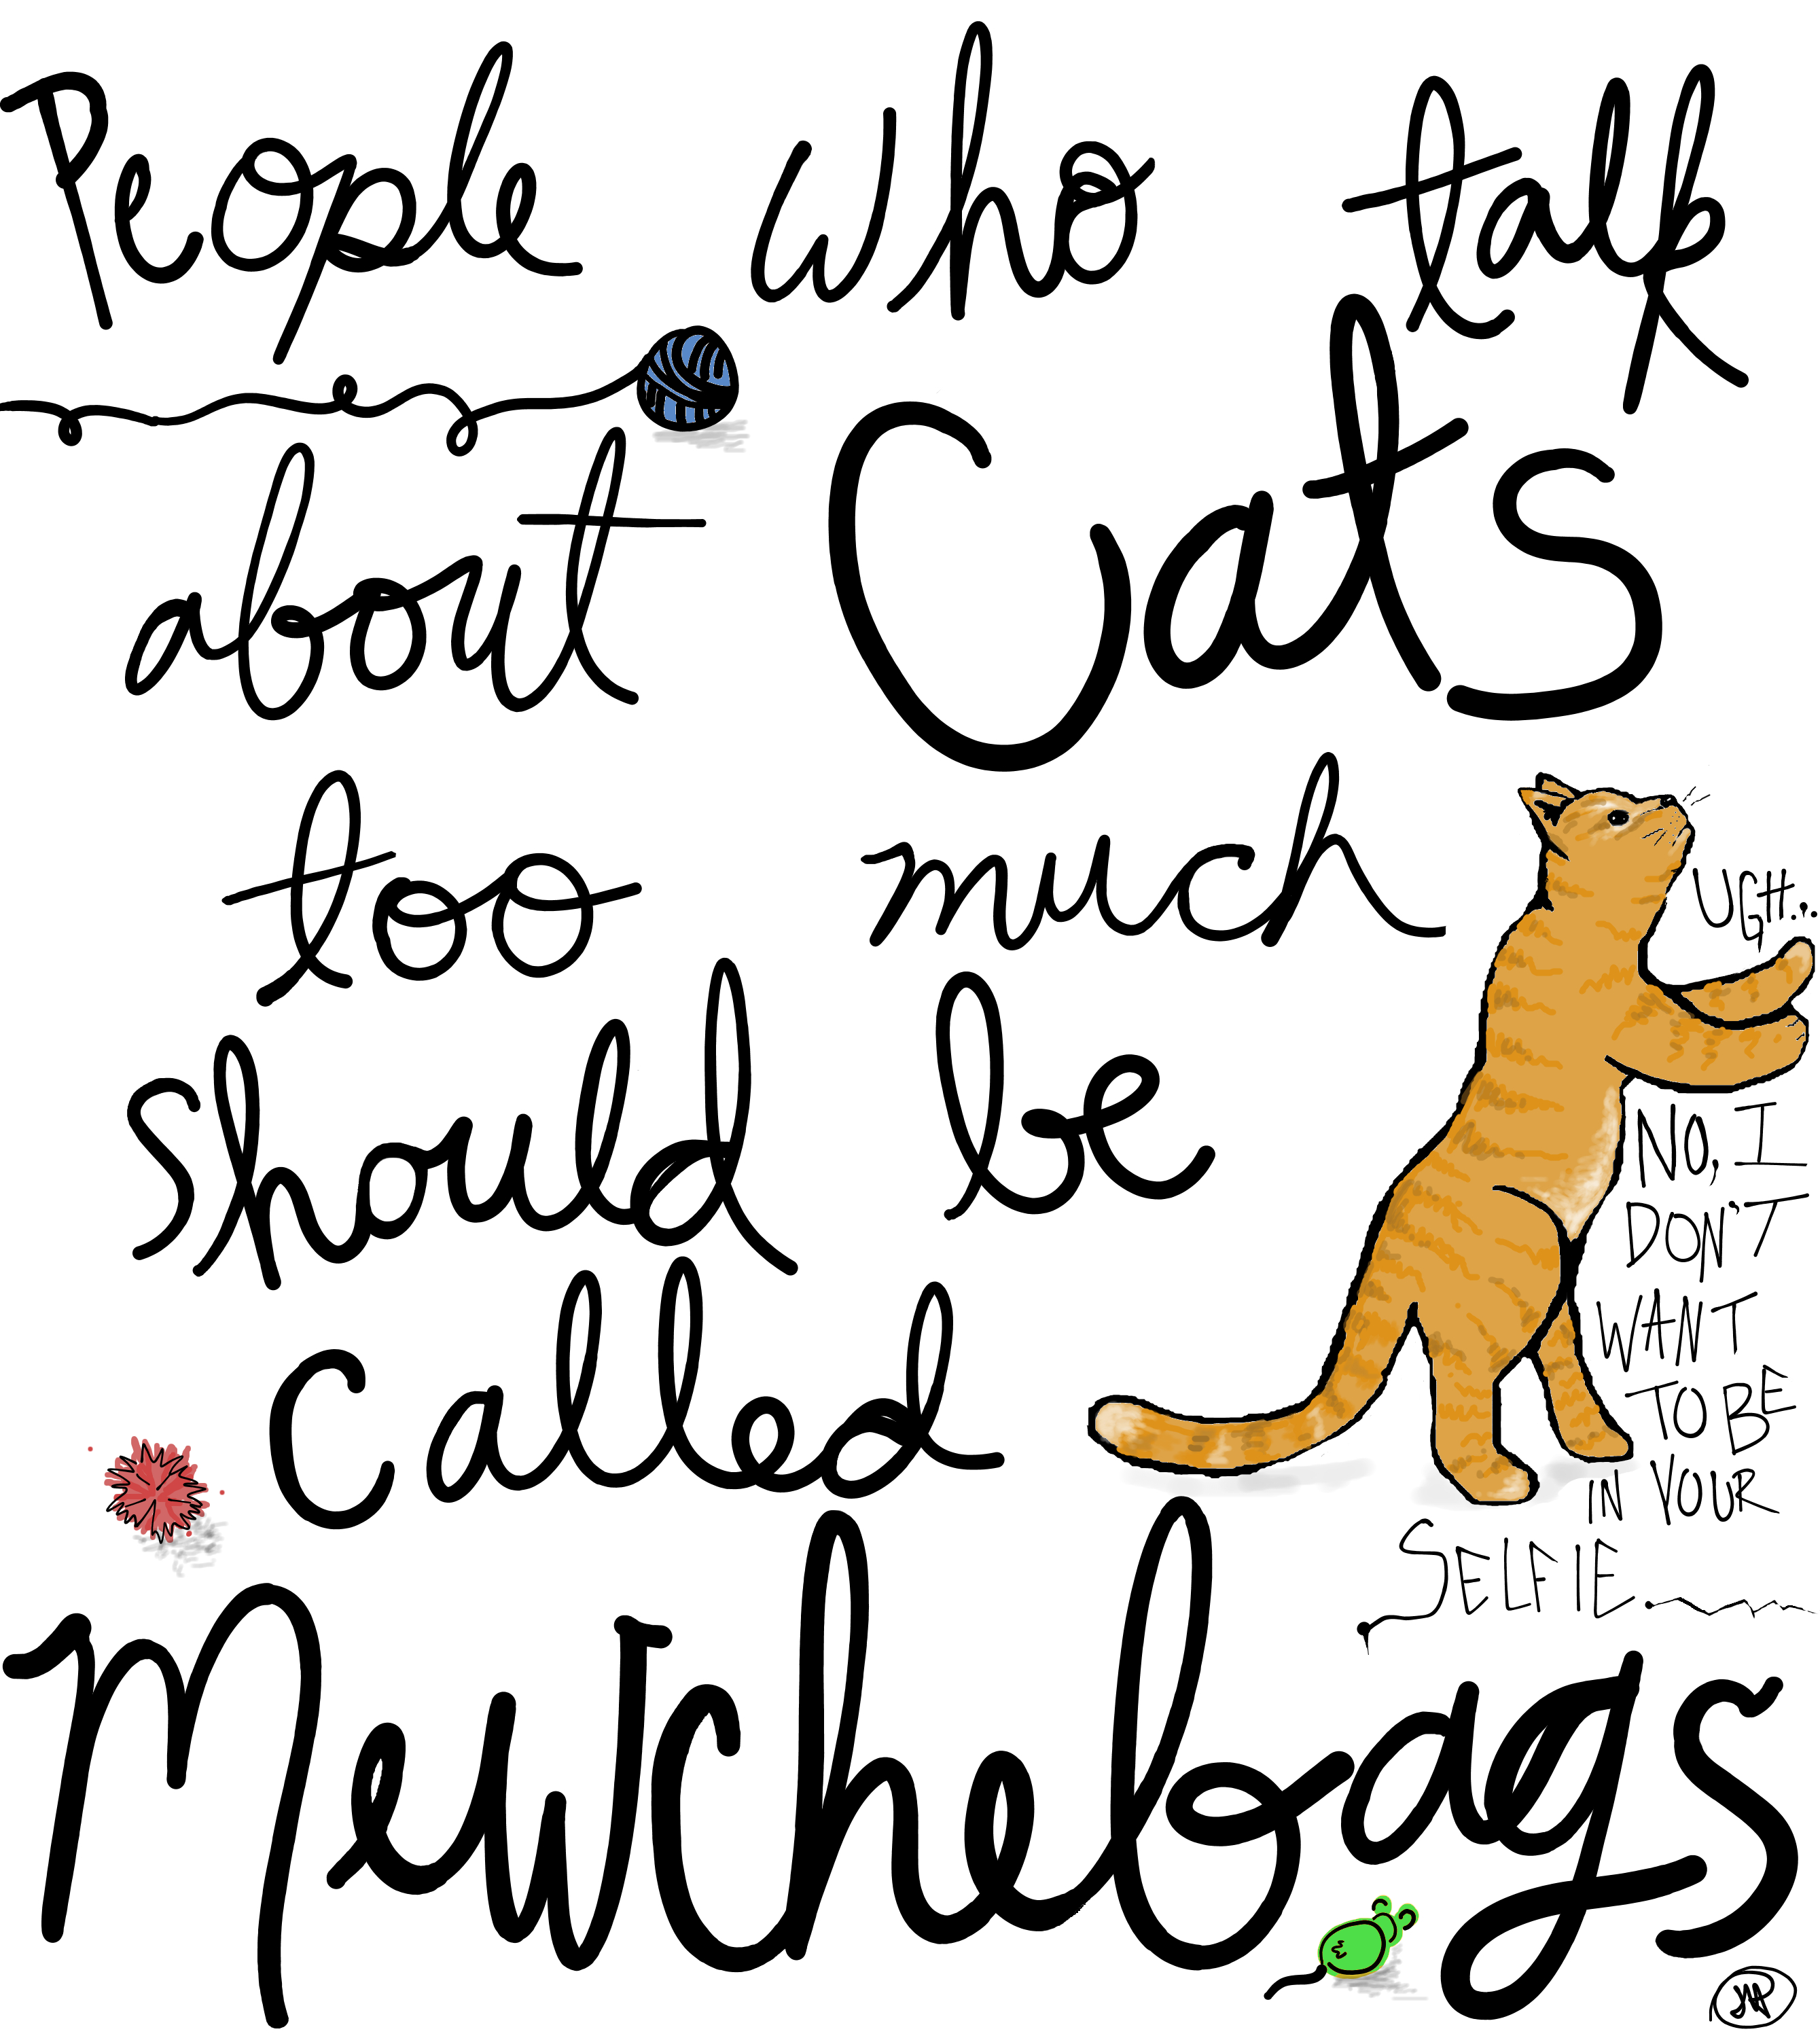 People who talk
about Cats
too much
Should be
Called
Mewchebags
UGH...
NO, I
DON'T
WANT
TO BE
IN YOUR
SELFIE